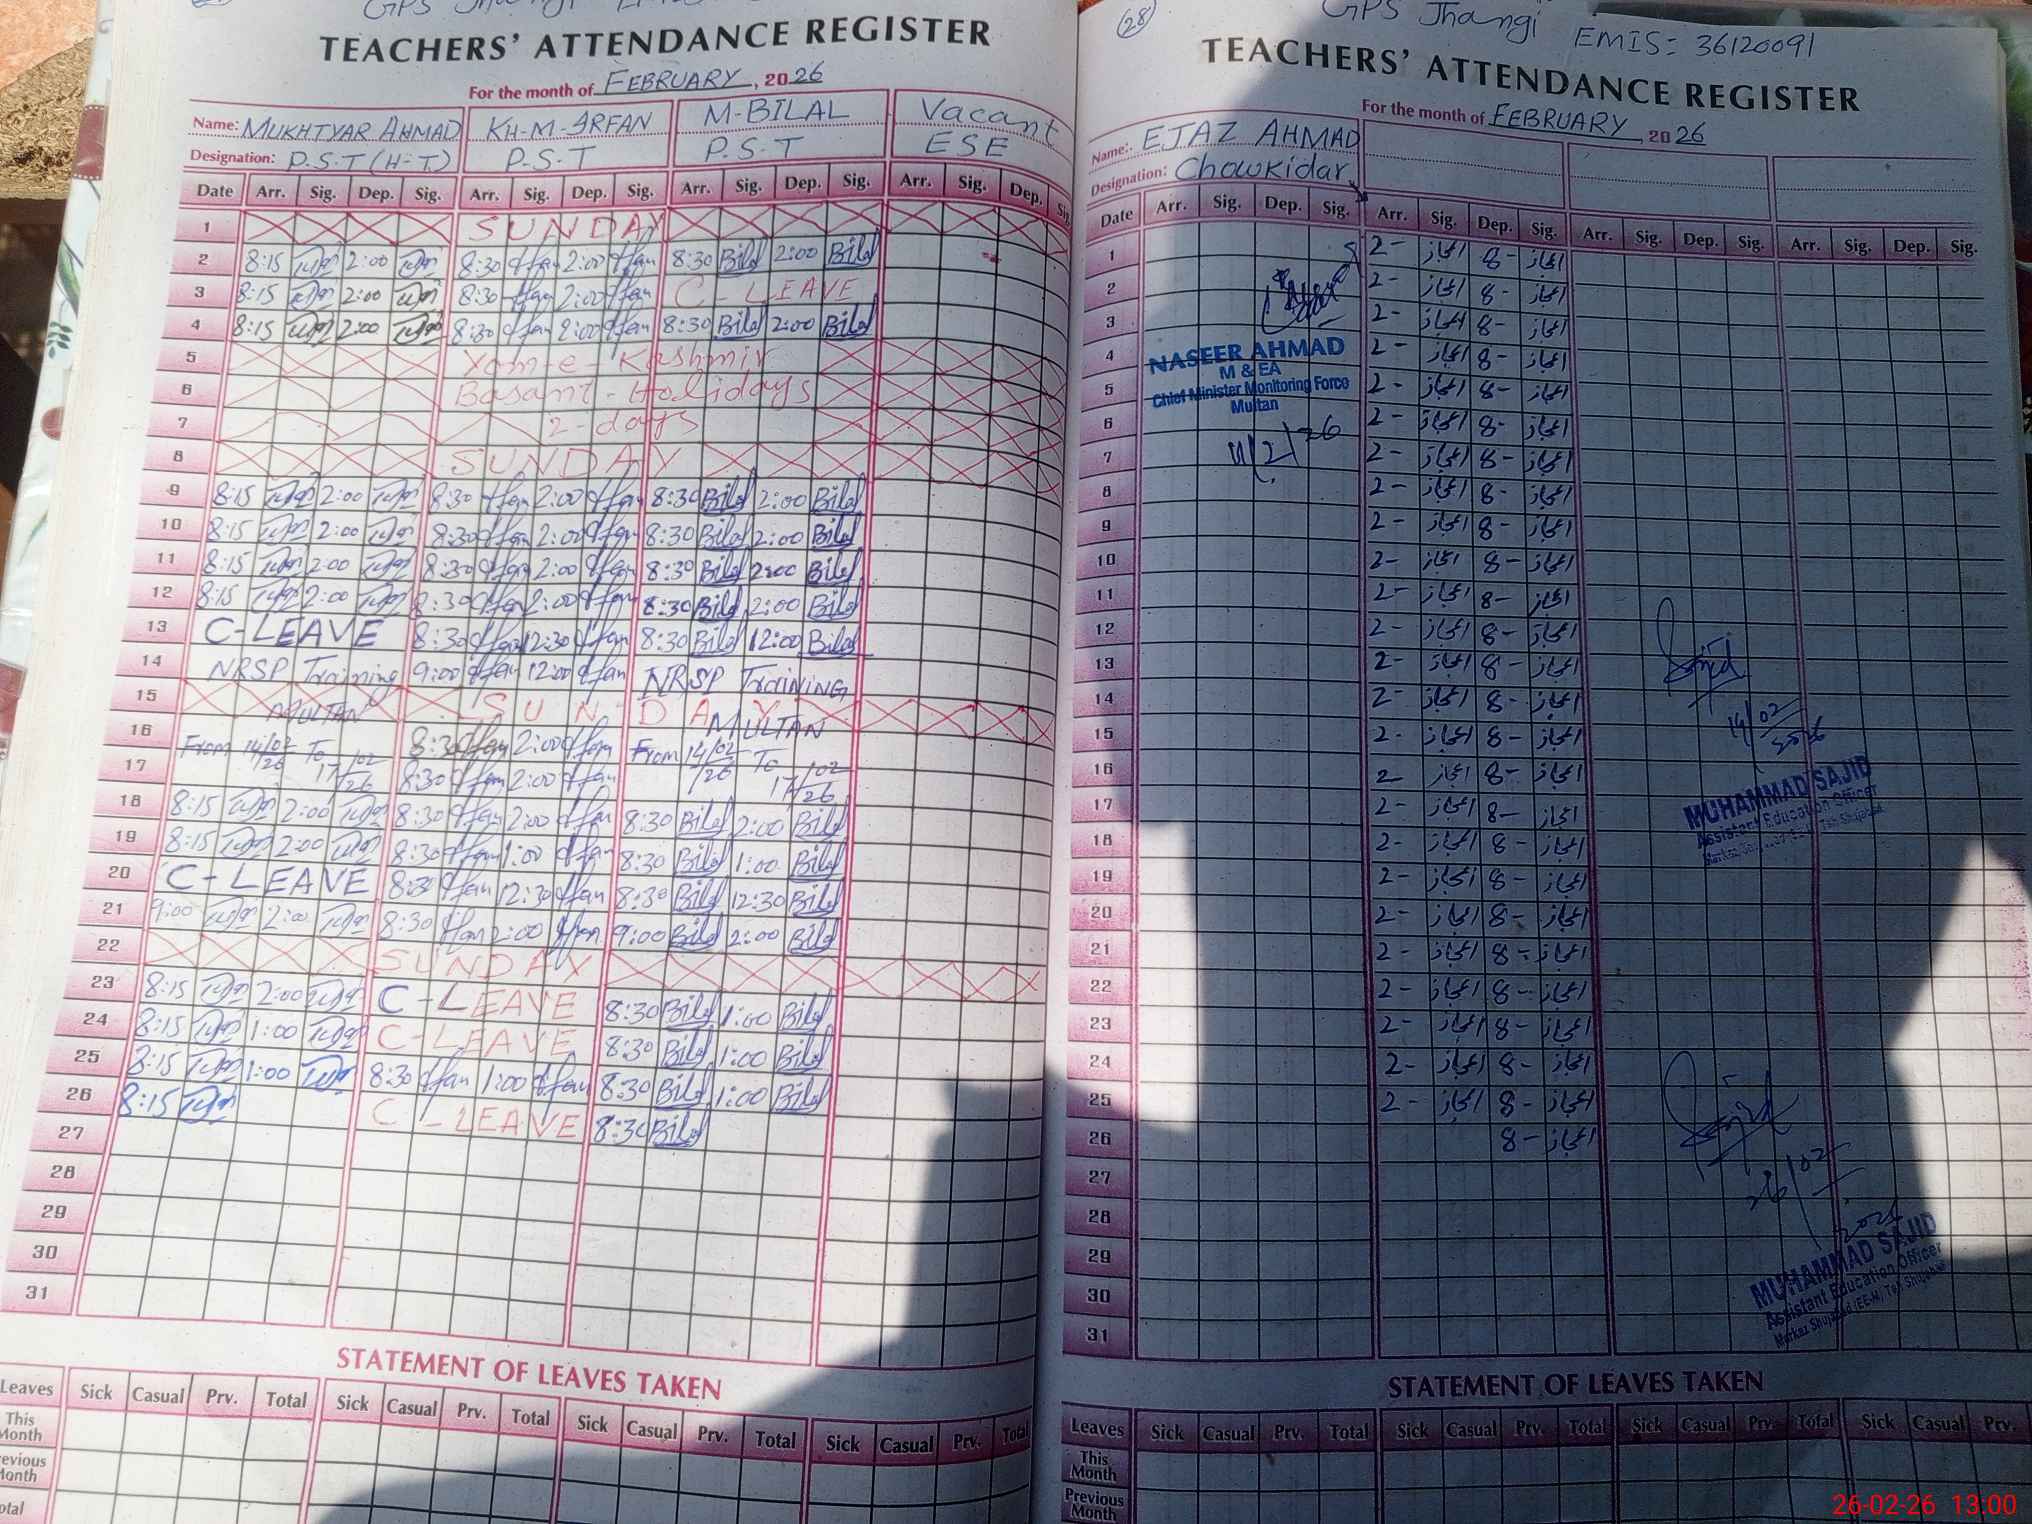 GPS Jhangi
TEACHERS' ATTENDANCE REGISTER
For the month of FEBRUARY, 2026
Name: MUKHTYAR AHMAD KH-M-IRFAN M-BILAL Vacant
Designation: P.S.T (H-T) P.S.T P.S.T ESE
Date Arr. Sig. Dep. Sig. Arr. Sig. Dep. Sig. Arr. Sig. Dep. Sig. Arr. Sig. Dep. Sig.
1 SUNDAY
2 8:15 2:00 8:30 Irfan 2:00 Irfan 8:30 Bilal 2:00 Bilal
3 8:15 2:00 8:30 Irfan 2:00 Irfan C-LEAVE
4 8:15 2:00 8:30 Irfan 2:00 Irfan 8:30 Bilal 2:00 Bilal
5 Yom-e-Kashmir
6 Basant-Holidays
7 2-days
8 SUNDAY
9 8:15 2:00 8:30 Irfan 2:00 Irfan 8:30 Bilal 2:00 Bilal
10 8:15 2:00 8:30 Irfan 2:00 Irfan 8:30 Bilal 2:00 Bilal
11 8:15 2:00 8:30 Irfan 2:00 Irfan 8:30 Bilal 2:00 Bilal
12 8:15 2:00 8:30 Irfan 2:00 Irfan 8:30 Bilal 2:00 Bilal
13 C-LEAVE 8:30 Irfan 12:30 Irfan 8:30 Bilal 12:00 Bilal
14 NRSP Training 9:00 Irfan 12:00 Irfan NRSP TraiNING
15 MULTAN SUNDAY MULTAN
16 From 14/02/26 To 8:30 Irfan 2:00 Irfan From 14/02/26 To
17 17/02/26 8:30 Irfan 2:00 Irfan 17/02/26
18 8:15 2:00 8:30 Irfan 2:00 Irfan 8:30 Bilal 2:00 Bilal
19 8:15 2:00 8:30 Irfan 1:00 Irfan 8:30 Bilal 1:00 Bilal
20 C-LEAVE 8:30 Irfan 12:30 Irfan 8:30 Bilal 12:30 Bilal
21 9:00 2:00 8:30 Irfan 2:00 Irfan 9:00 Bilal 2:00 Bilal
22 SUNDAY
23 8:15 2:00 C-LEAVE 8:30 Bilal 1:00 Bilal
24 8:15 1:00 C-LEAVE 8:30 Bilal 1:00 Bilal
25 8:15 1:00 8:30 Irfan 1:00 Irfan 8:30 Bilal 1:00 Bilal
26 8:15 C-LEAVE 8:30 Bilal
27
28
29
30
31
STATEMENT OF LEAVES TAKEN
Leaves Sick Casual Prv. Total Sick Casual Prv. Total Sick Casual Prv. Total Sick Casual Prv. Total
This Month
Previous Month
Total
28 GPS Jhangi EMIS: 36120091
TEACHERS' ATTENDANCE REGISTER
For the month of FEBRUARY, 2026
Name: EJAZ AHMAD
Designation: Chowkidar
Date Arr. Sig. Dep. Sig. Arr. Sig. Dep. Sig. Arr. Sig. Dep. Sig. Arr. Sig. Dep. Sig.
1 2- اعجاز 8- اعجاز
2 2- اعجاز 8- اعجاز
3 2- اعجاز 8- اعجاز
4 2- اعجاز 8- اعجاز
5 2- اعجاز 8- اعجاز
6 2- اعجاز 8- اعجاز
7 2- اعجاز 8- اعجاز
8 2- اعجاز 8- اعجاز
9 2- اعجاز 8- اعجاز
10 2- اعجاز 8- اعجاز
11 2- اعجاز 8- اعجاز
12 2- اعجاز 8- اعجاز
13 2- اعجاز 8- اعجاز
14 2- اعجاز 8- اعجاز
15 2- اعجاز 8- اعجاز
16 2- اعجاز 8- اعجاز
17 2- اعجاز 8- اعجاز
18 2- اعجاز 8- اعجاز
19 2- اعجاز 8- اعجاز
20 2- اعجاز 8- اعجاز
21 2- اعجاز 8- اعجاز
22 2- اعجاز 8- اعجاز
23 2- اعجاز 8- اعجاز
24 2- اعجاز 8- اعجاز
25 2- اعجاز 8- اعجاز
26 8- اعجاز
27
28
29
30
31
NASEER AHMAD
M & EA
Chief Minister Monitoring Force
Multan
11/2/26
Sajid
14/02/2026
MUHAMMAD SAJID
Assistant Education Officer
Sajid
26/02/2026
MUHAMMAD SAJID
Assistant Education Officer
STATEMENT OF LEAVES TAKEN
Leaves Sick Casual Prv. Total Sick Casual Prv. Total Sick Casual Prv. Total Sick Casual Prv.
This Month
Previous Month
26-02-26 13:00